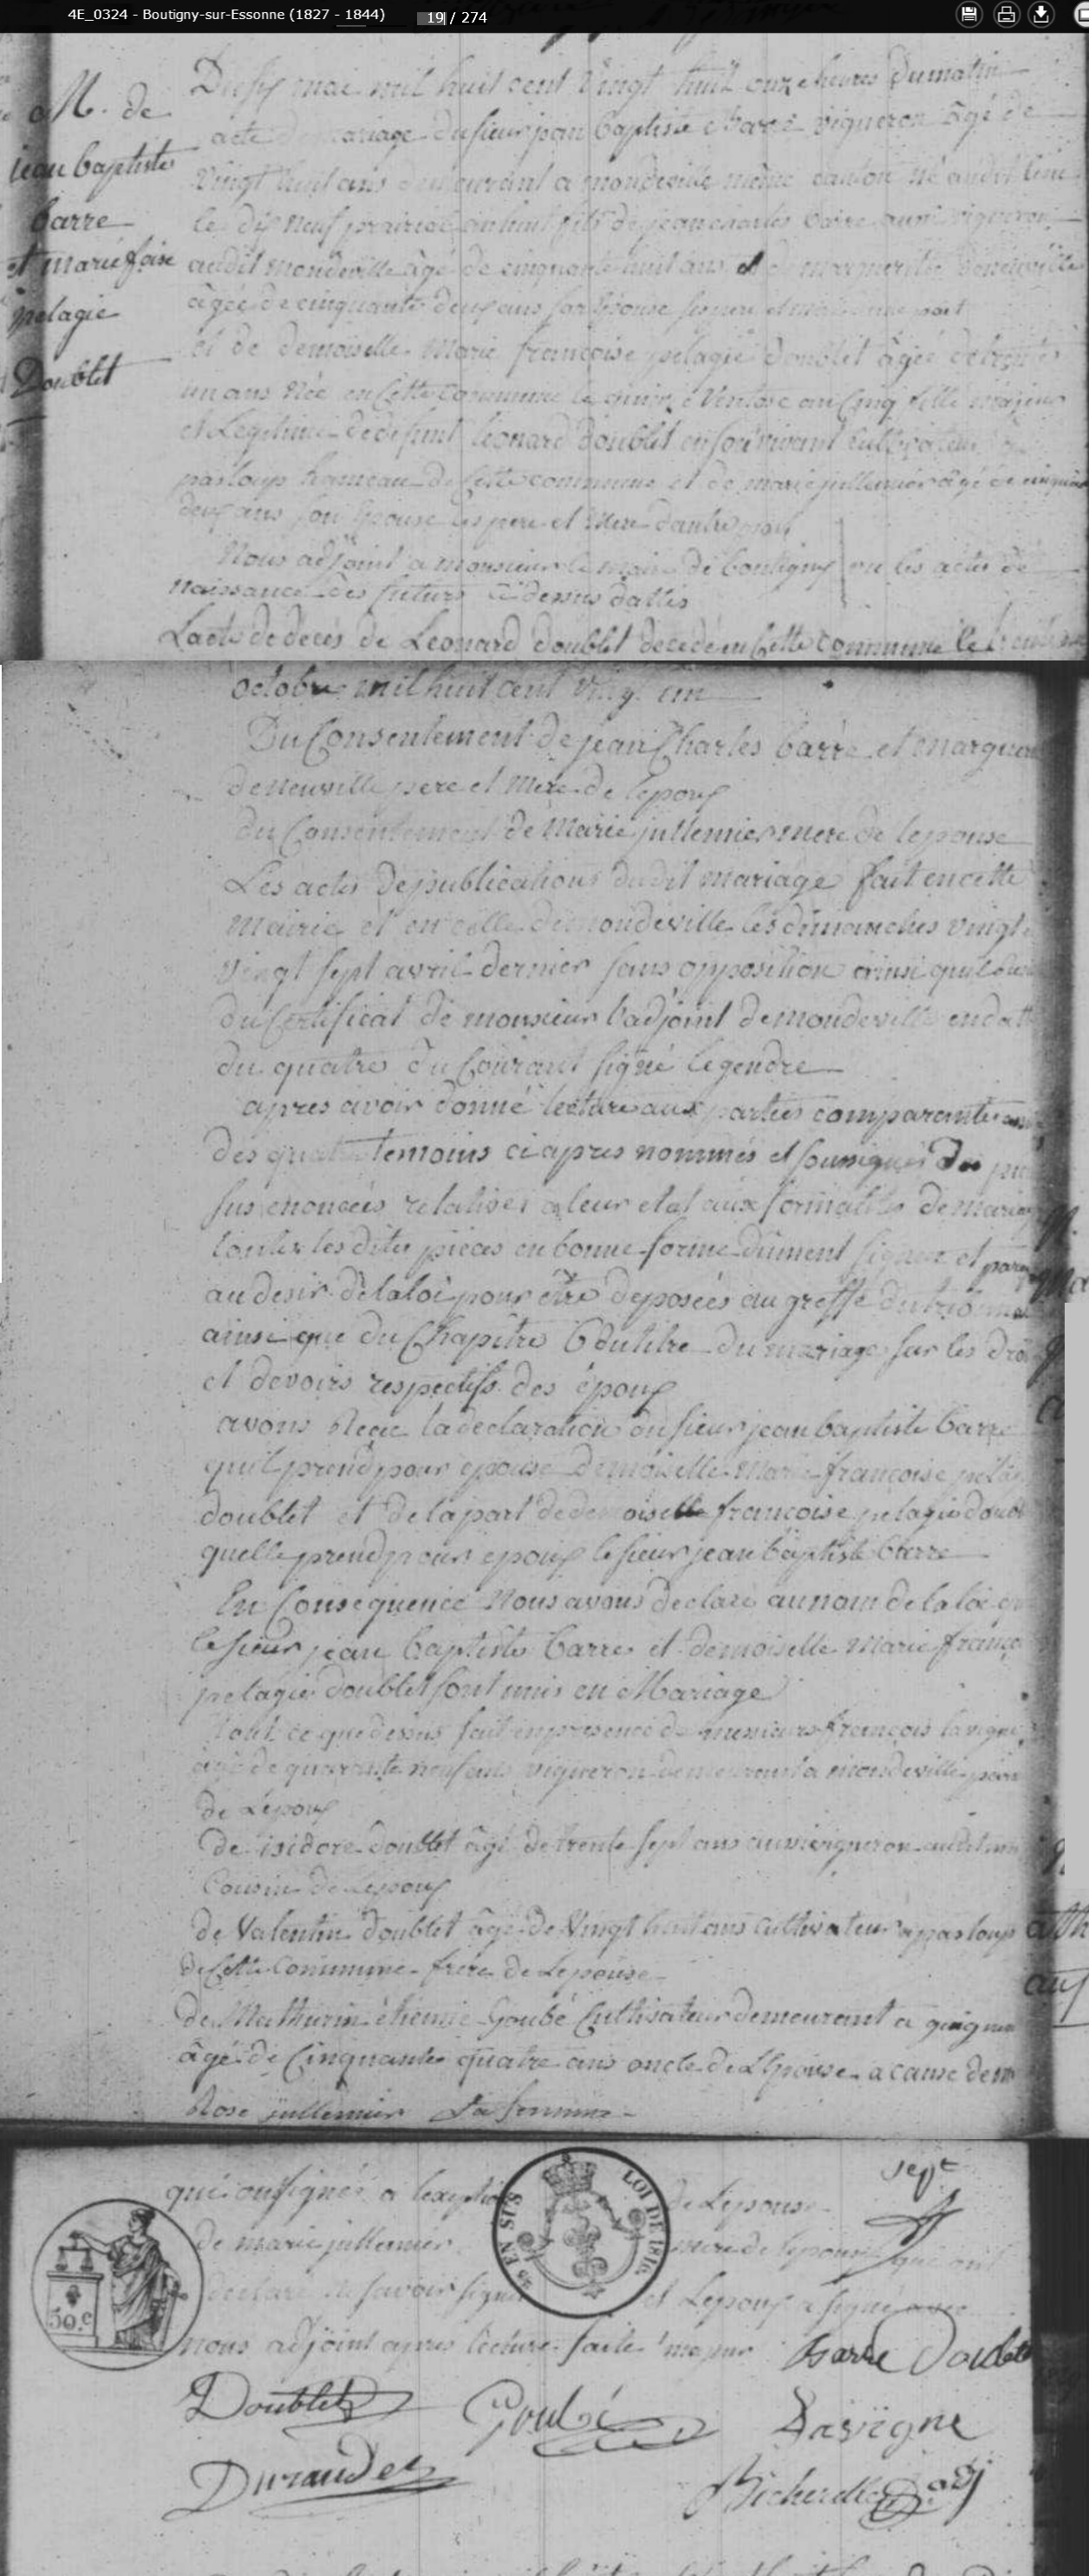 4E_0324 - Boutigny-sur-Essonne (1827 - 1844)
19 / 274
M. de
jean baptiste
barre
et marie f.oise
pelagie
Doublet
Du six mai mil huit cent vingt huit onze heures du matin
acte mariage du sieur jean baptiste barré vigneron âgé de
vingt huit ans demeurant a mondeville même canton né audit lieu
le dix neuf prairial an huit fils de jean charles barre aussi vigneron
audit mondeville âgé de cinquante huit ans et
âgée de cinquante deux ans son épouse ses pere et mere d'une part
et de demoiselle Marie françoise pelagie doublet âgée de trente
un ans née en cette commune le ventose an cinq fille majeure
et Legitime de defunt léonard doublet en son vivant cultivateur
pasloup hameau de cette commune et de marie jullemier âgé de cinquante
deux ans son épouse ses pere et mere d'autre part
Nous adjoint a monsieur le maire de boutigny vu les actes de
naissance des futurs ci dessus dattés
L'acte de deces de Leonard doublet decedé en cette commune le
octobre mil huit cent vingt un
Du Consentement de jean Charles barré et marguerite
deneuville pere et mere de lepoux
du Consentement de Marie jullemier mere de lepouse
Les actes de publications dudit mariage fait en cette
mairie et en celle de mondeville les dimanches vingt
vingt sept avril dernier sans opposition ainsi quil
du certificat de monsieur l'adjoint de mondeville en datte
du quatre du Courant signé legendre
apres avoir donné lecture aux parties comparantes
des quatre temoins ci apres nommés et soussignés des
sus enoncées relatives a leur etat aux formalités de mariage
toutes les dites pieces en bonne forme dument signées et
au desir de la loi pour être deposées au greffe du tribunal
ainsi que du Chapitre 6 du titre du mariage sur les droits
et devoirs respectifs des époux
avons Reçu la declaration du sieur jean baptiste barre
quil prend pour epouse demoiselle Marie françoise pelagie
doublet et de la part de demoiselle françoise pelagie doublet
quelle prend pour epoux le sieur jean baptiste barre
En Consequence Nous avons declaré au nom de la loi que
le sieur jean baptiste barre et demoiselle Marie françoise
pelagie doublet sont unis en Mariage
Tout ce que dessus fait en presence de messieurs françois lavigne
agé de quarante neuf ans vigneron demeurant a mondeville
de Lepoux
de isidore doublet âgé de trente sept ans aussi vigneron audit
Cousin de Lepoux
de Valentin doublet âgé de Vingt huit ans cultivateur a pasloup
de Cette Commune frere de Lepouse
de Mathurin étienne Goubé Cultivateur demeurant a
âgé de Cinquante quatre ans oncle de Lépouse a cause de
Rose jullemier sa femme
sept
qui ont signé a lexeption de Lepouse
de marie jullemier mere de lepouse qui ont
declaré ne savoir signer et Lepoux a signé avec
nous adjoint apres lecture faite
LOI DE 1816.
EN SUS
50.c
Barre Doublet
Doublet Goubé Lavigne
Durandet Bicherelle adj